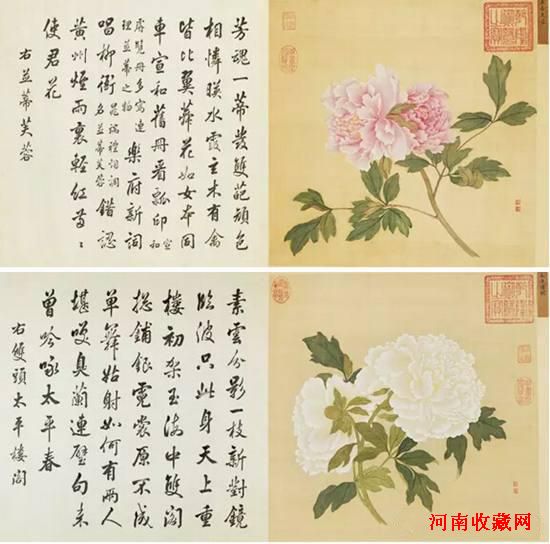 芳魂一蒂發雙葩
相憐映水霞有禽
皆比翼蕣花如女本同
車宣和舊冊看瓢印宣和
冊多寫連理並蒂之物樂府新詞
唱柳衙名並蒂芙蓉錯認
黃州煙雨裏輕紅
使君花
右並蒂芙蓉
素雲分影一枝新對鏡
臨波只此身天上重
樓初架玉海中雙閣
總鋪銀霓裳原不成
單舞姑射如何有兩人
堪笑臭蘭連璧句未
曾吟咏太平春
右雙頭太平樓閣
河南收藏网